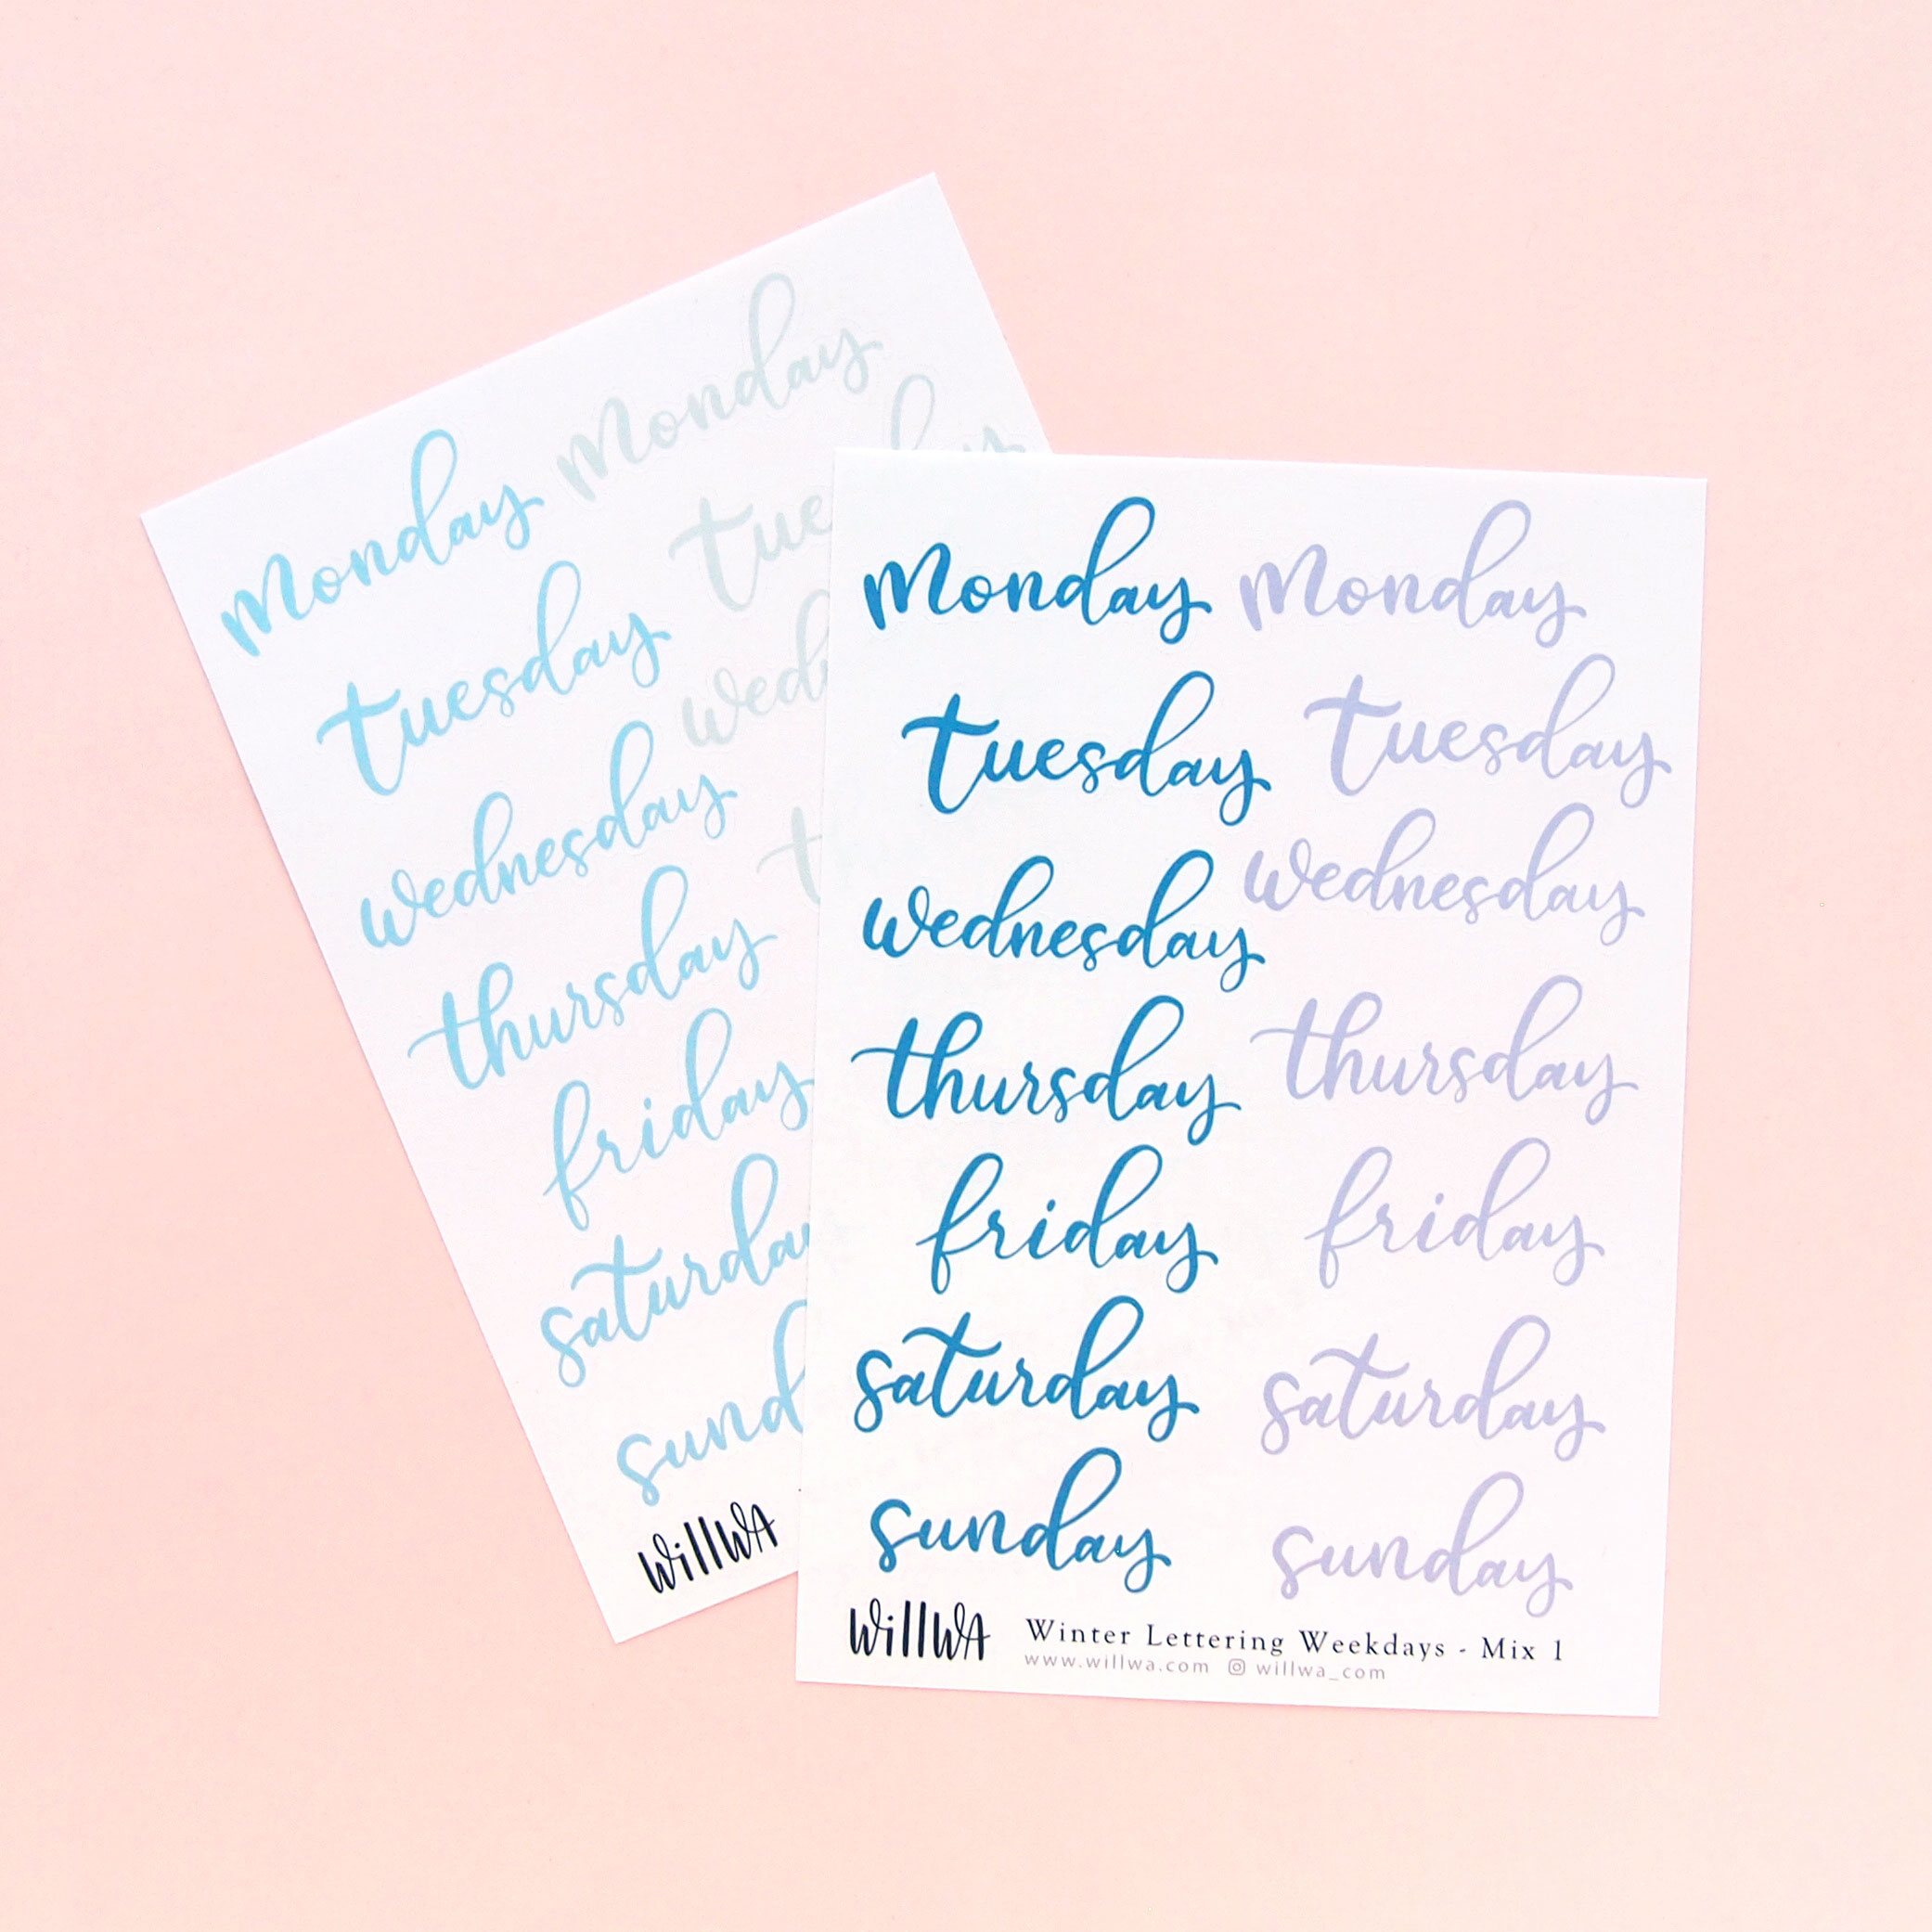 Monday Monday
tuesday
wednesday
thursday
friday
saturday
sund
WillWA
Monday Monday
tuesday tuesday
wednesday wednesday
thursday thursday
friday friday
saturday saturday
sunday sunday
WillWA Winter Lettering Weekdays - Mix 1
www.willwa.com willwa_com